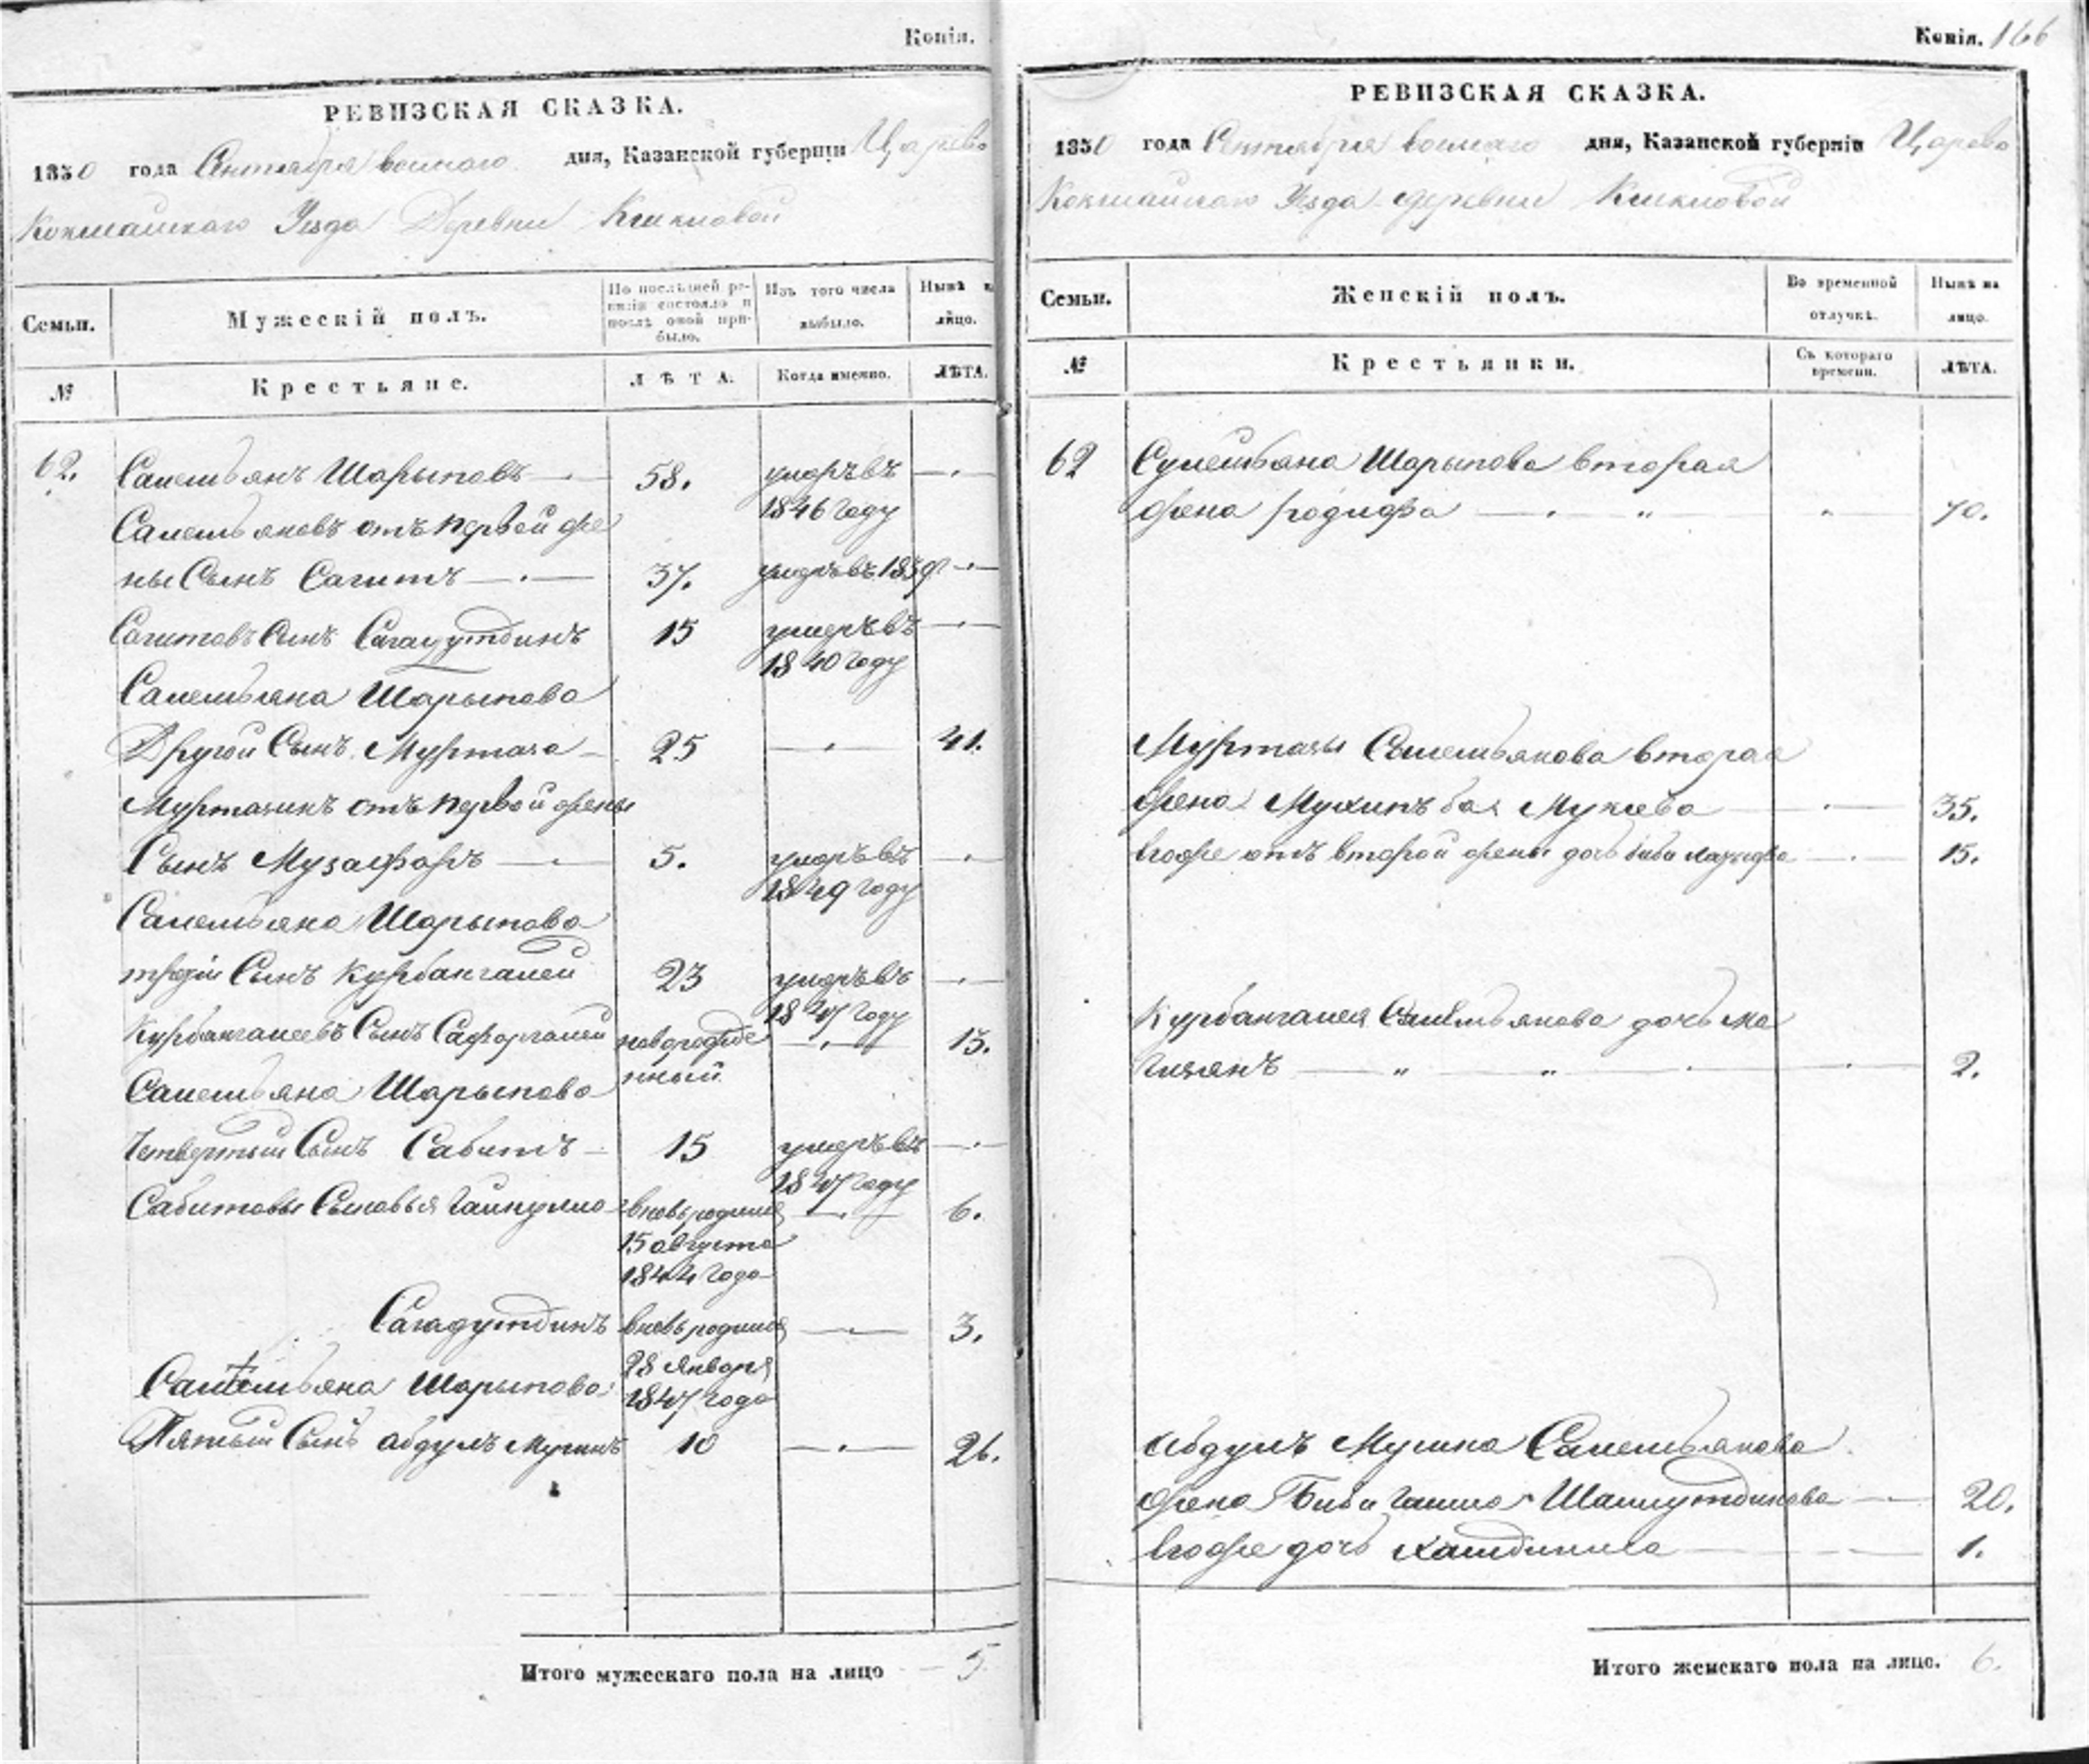 Копія.
РЕВИЗСКАЯ СКАЗКА.
1850 года Сентября восмаго дня, Казанской губерніи Царево
Кокшайскаго Уезда Деревни Кшкловой
Семьи.
Мужескій полъ.
По послѣдней ре-
визіи состояло и
послѣ оной при-
было.
Изъ того числа
выбыло.
Нынѣ на
лицо.
№
Крестьяне.
ЛѢТА.
Когда именно.
ЛѢТА.
62. Самельянъ Шарыповъ — 58. умеръ въ —
1846 году
Самельяновъ отъ первой же
ны Сынъ Сагитъ — 37. умеръ въ
Сагитовъ Сынъ 15 умеръ въ —
1840 году
Самельяна Шарыпова
Другой Сынъ Муртаза — 25 — 41.
Муртазинъ отъ первой жены
Сынъ Музафаръ — 5. умеръ въ —
1849 году
Самельяна Шарыпова
третій Сынъ Курбангалей 23 умеръ въ —
1847 году
Курбангалеевъ Сынъ Сафаргалей новорожде — 15.
нный
Самельяна Шарыпова
Четвертый Сынъ Сабитъ — 15 умеръ въ —
1847 году
Сабитовы Сыновья вновь родился — 6.
15 августа
1844 года
Сагадутдинъ вновь родился — 3.
28 Января
1847 года
Самельяна Шарыпова
Пятый Сынъ абдулъ Мугинъ 10 — 26.
Итого мужескаго пола на лицо — 5.
Копія. 166
РЕВИЗСКАЯ СКАЗКА.
1850 года Сентября восмаго дня, Казанской губерніи Царево
Кокшайскаго Уезда деревни Кшкловой
Семьи.
Женскій полъ.
Во временной
отлучкѣ.
Нынѣ на
лицо.
№
Крестьянки.
Съ котораго
времени.
ЛѢТА.
62 Самельяна Шарыпова вторая
жена — " — " — 70.
Муртазы Самельянова вторая
жена — 35.
Ево же отъ второй жены дочь биби — 15.
Курбангалея Самельянова дочь Ма
— " — " — 2.
Абдулъ Мугина Самельянова
жена Биби — 20.
Ево же дочь — 1.
Итого женскаго пола на лицо. 6.